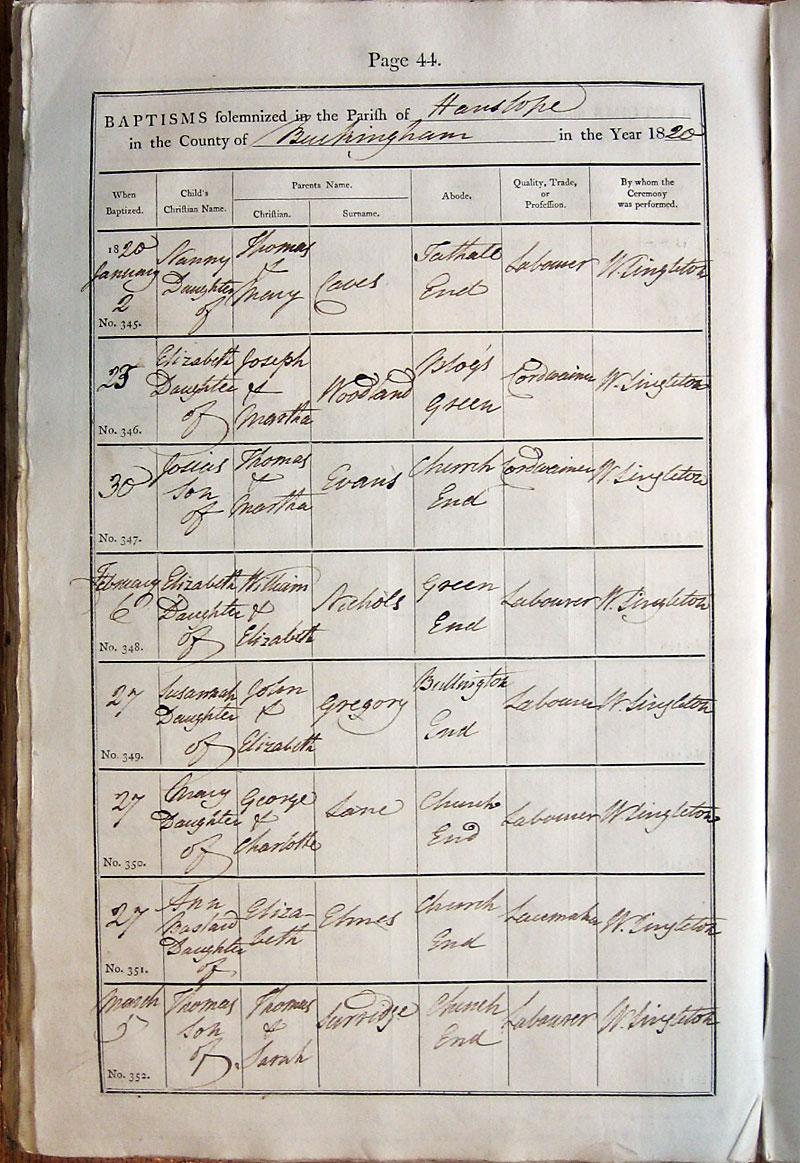 Page 44.
BAPTISMS solemnized in the Parish of Hanslope
in the County of Buckingham in the Year 1820
When Baptized. Child's Christian Name. Parents Name. Christian. Surname. Abode. Quality, Trade, or Profession. By whom the Ceremony was performed.
1820 January 2 No. 345. Nanny Daughter of Thomas & Mary Caves Tathall End Labourer W. Singleton
23 No. 346. Elizabeth Daughter of Joseph & Martha Woodland Green Cordwainer W. Singleton
30 No. 347. Josias Son of Thomas & Martha Evans Church End Cordwainer W. Singleton
February 6 No. 348. Elizabeth Daughter of William & Elizabeth Nichols Green End Labourer W. Singleton
27 No. 349. Susannah Daughter of John & Elizabeth Gregory Bullington End Labourer W. Singleton
27 No. 350. Mary Daughter of George & Charlotte Lane Church End Labourer W. Singleton
27 No. 351. Ann Bastard Daughter of Eliza-beth Elmes Church End Lacemaker W. Singleton
March 5 No. 352. Thomas Son of Thomas & Sarah Surridge Church End Labourer W. Singleton